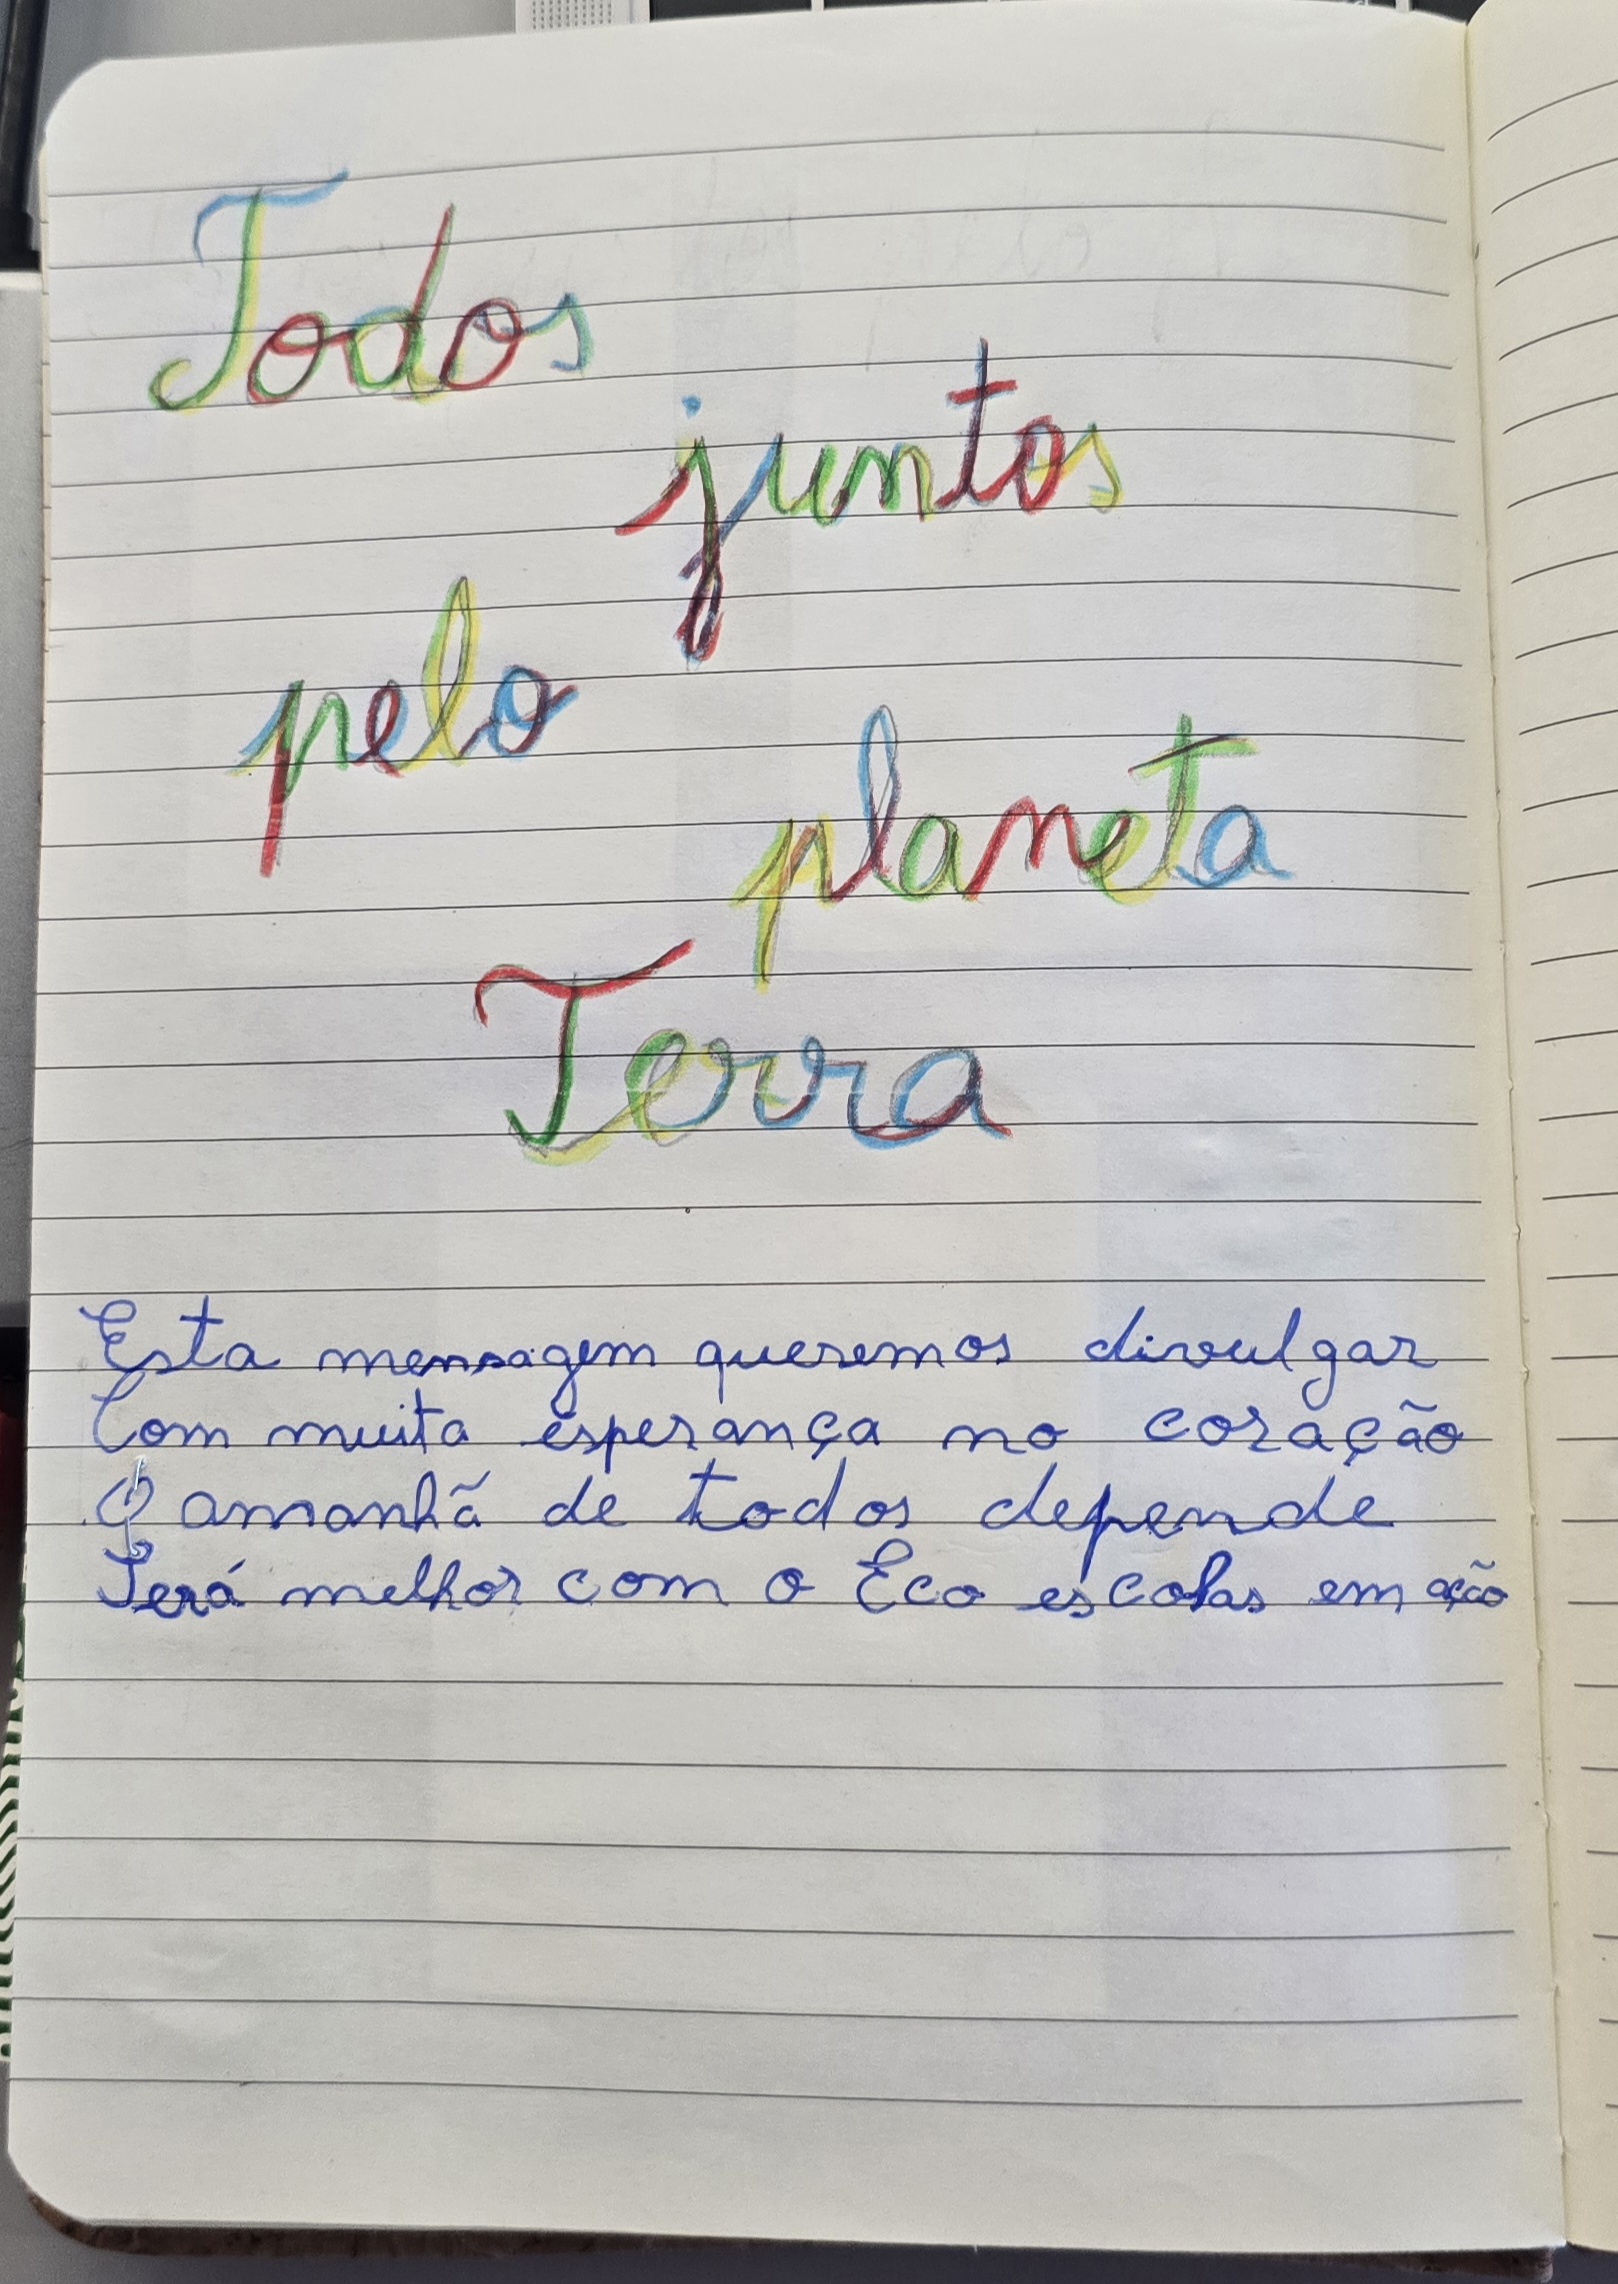 Todos
juntos
pelo
planeta
Terra
Esta mensagem queremos divulgar
Com muita esperança no coração
O amanhã de todos depende
Será melhor com o Eco escolas em ação